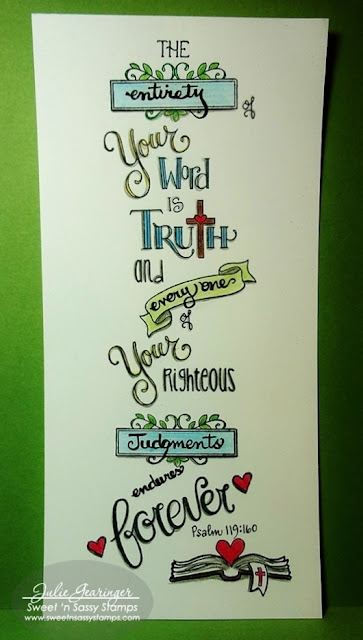 THE
entirety
of
Your
Word
IS
TRUTH
and
every one
of
Your
Righteous
Judgments
endures
forever
Psalm 119:160
Julie Gearinger
Sweet 'n Sassy Stamps
www.sweetnsassystamps.com